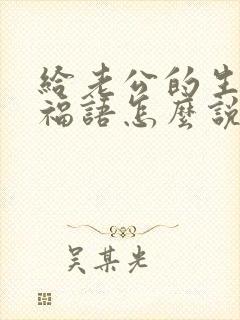 給老公的生
福語怎麼説
吴某光